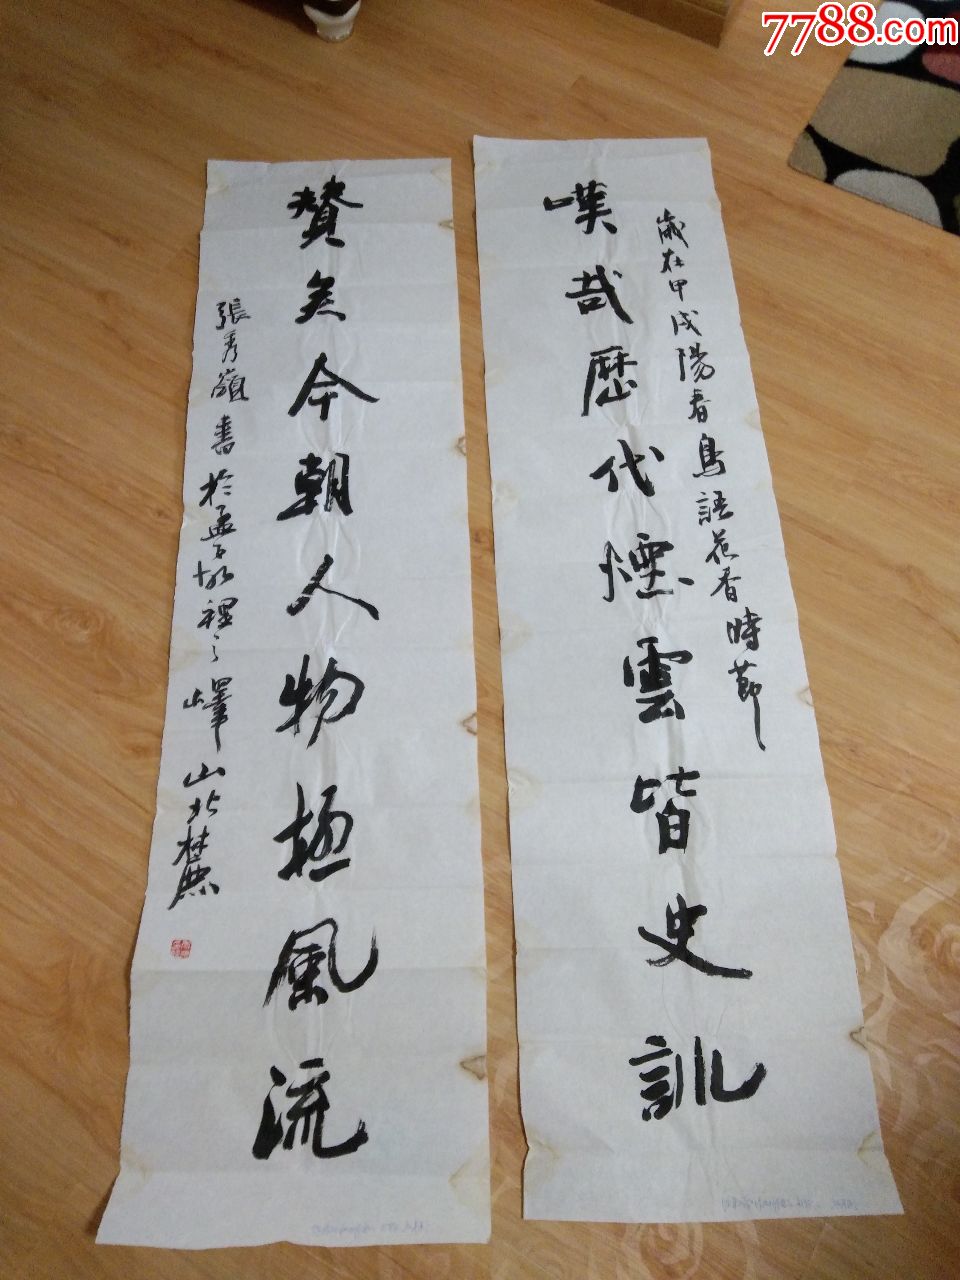 7788.com
歲在甲戌陽春鳥語花香時節
嘆哉歷代煙雲皆史訓
贊矣今朝人物極風流
張秀嶺書於孟子故裡之嶧山北麓